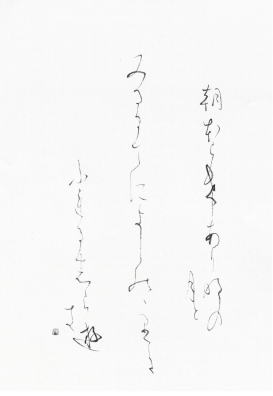 朝ぼらけあり明の
月と
みるまてによしのゝさとに
ふれるしら雪